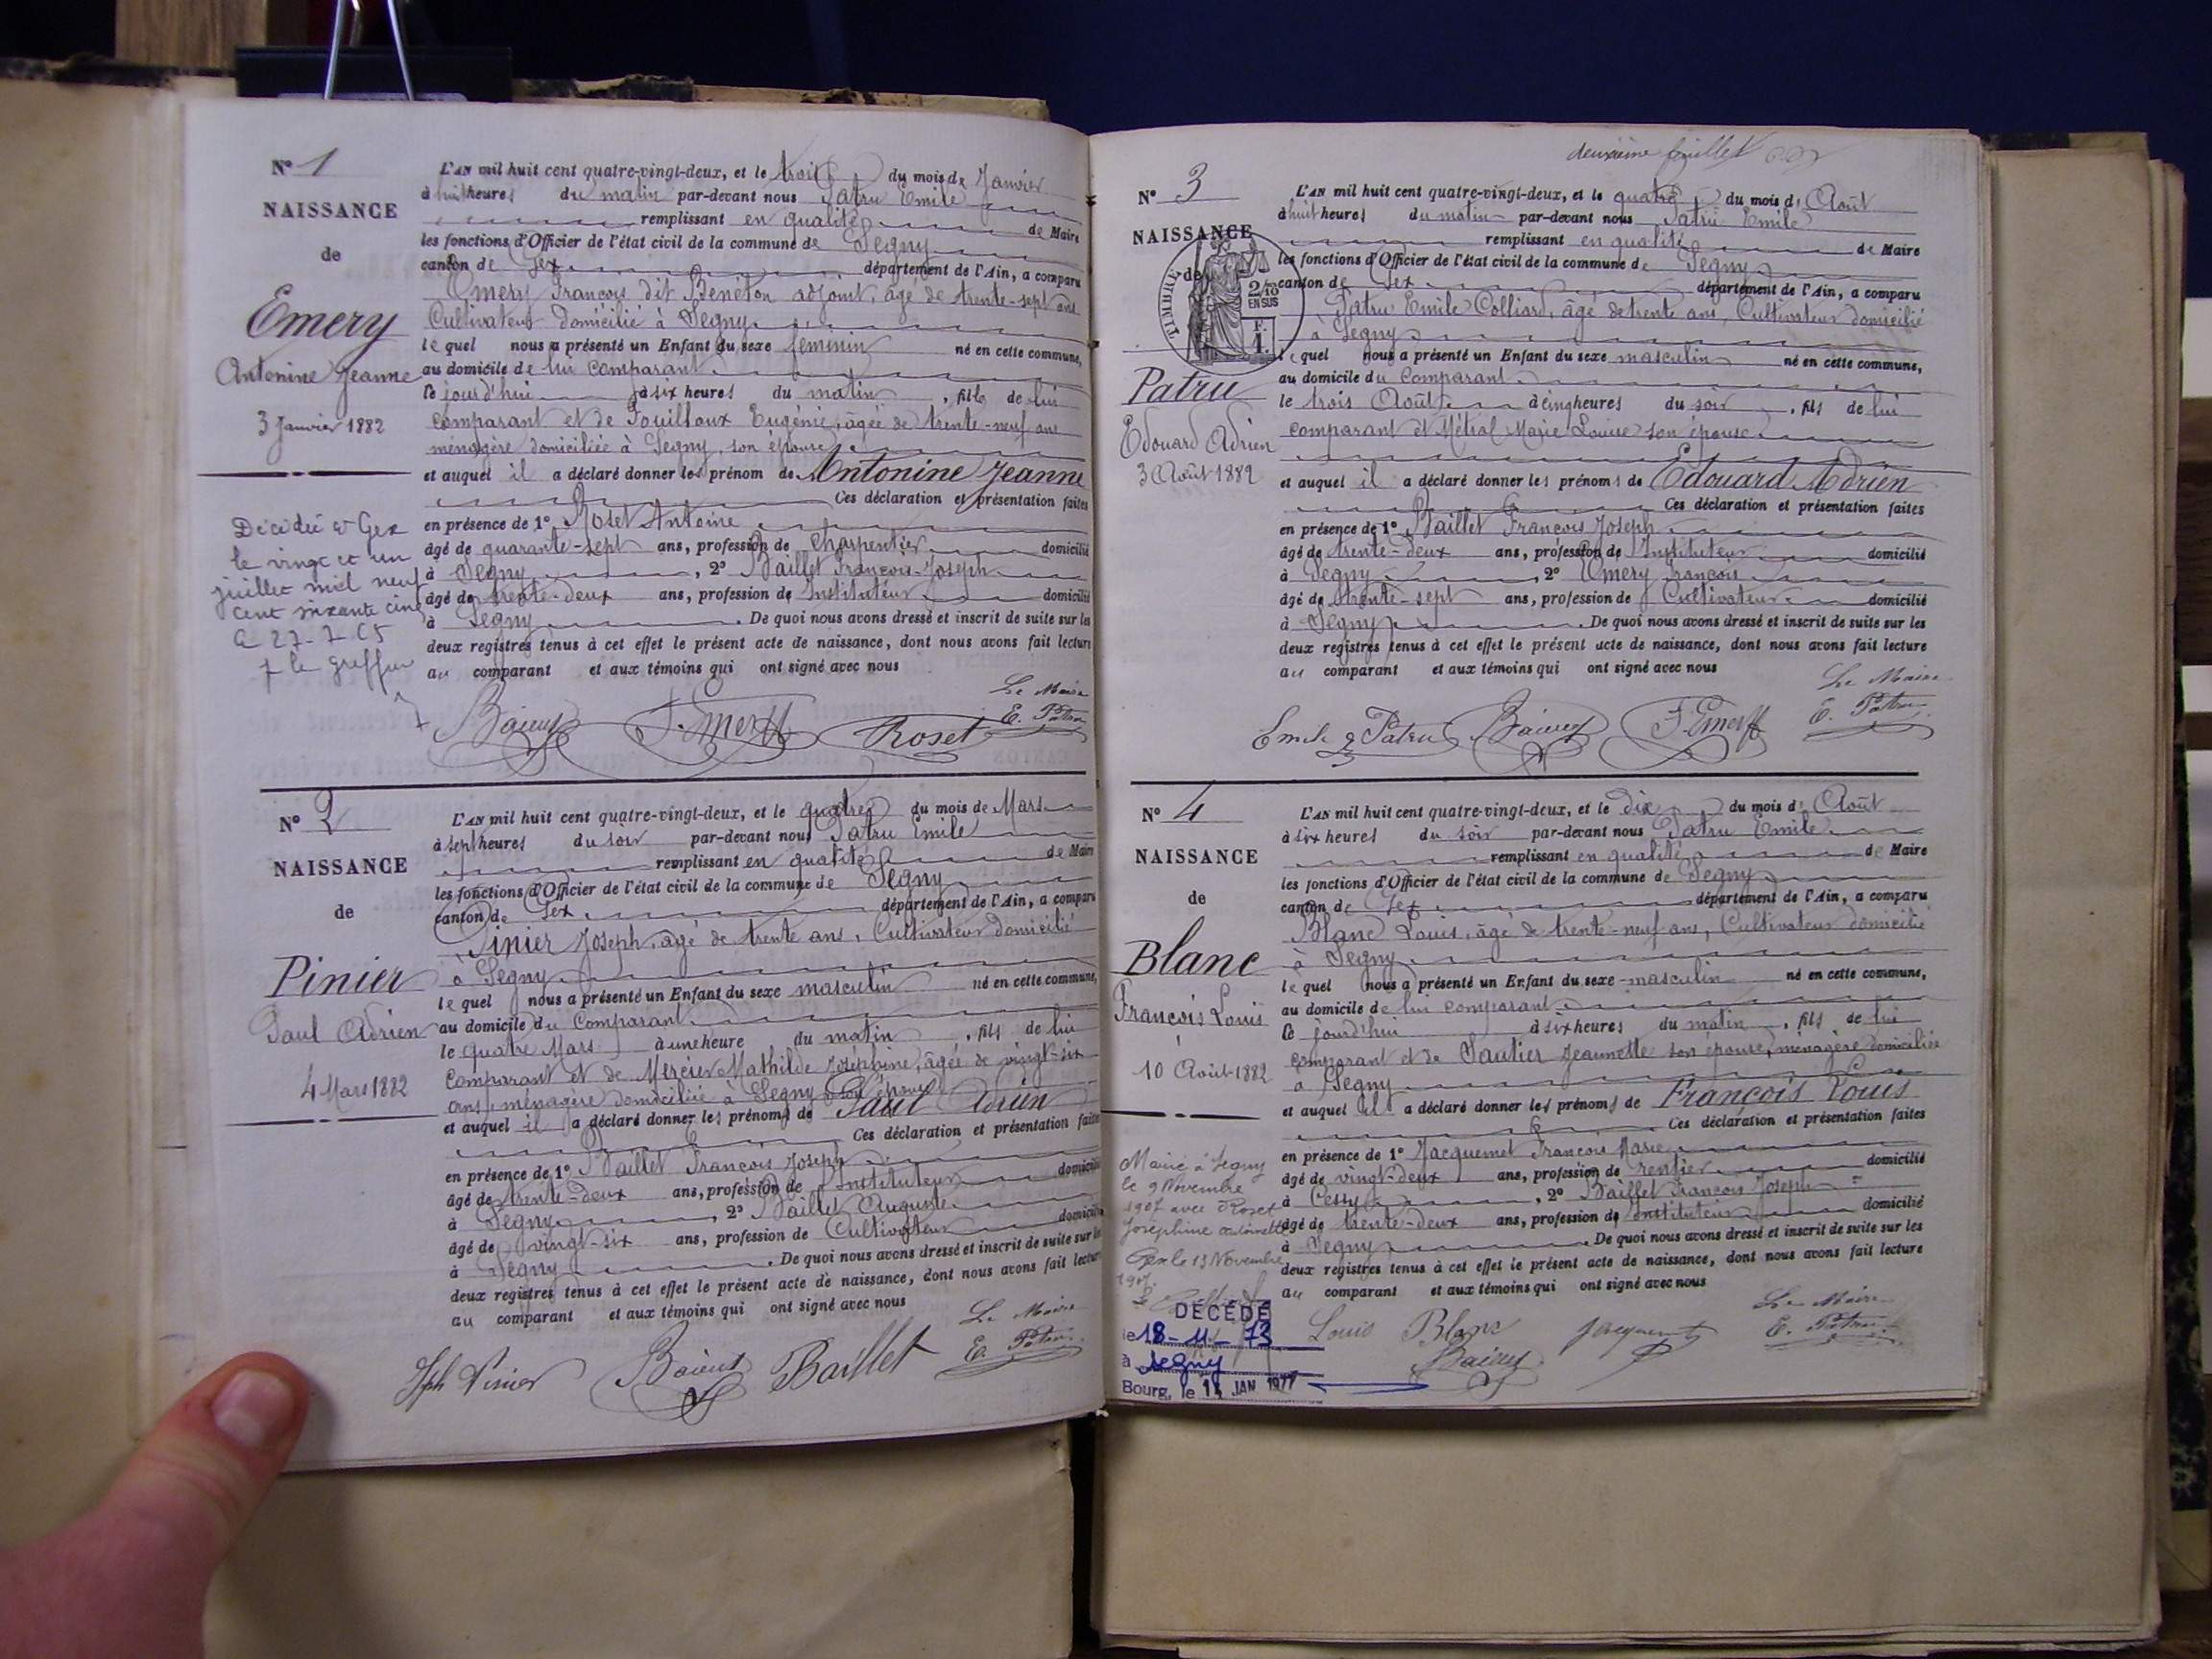 N° 1
NAISSANCE
de
Emery
Antonine Jeanne
3 Janvier 1882
Décédée à Gex
le vingt et un
juillet mil neuf
cent soixante cinq
le greffier
L'AN mil huit cent quatre-vingt-deux, et le trois du mois de Janvier
à huit heures du matin par-devant nous Patru Emile
remplissant en qualité de Maire
les fonctions d'Officier de l'état civil de la commune de Segny
canton de Gex département de l'Ain, a comparu
Emery François dit Benéton adjoint, âgé de trente-sept ans
Cultivateur domicilié à Segny
lequel nous a présenté un Enfant du sexe féminin né en cette commune,
au domicile de lui comparant
ce jourd'hui à six heures du matin, fille de lui
comparant et de Fouilloux Eugénie, âgée de trente-neuf ans
ménagère domiciliée à Segny, son épouse
et auquel il a déclaré donner les prénom de Antonine Jeanne
Ces déclaration et présentation faites
en présence de 1° Roset Antoine
âgé de quarante-sept ans, profession de Charpentier domicilié
à Segny, 2° Baillet François-Joseph
âgé de trente-deux ans, profession de Instituteur domicilié
à Segny. De quoi nous avons dressé et inscrit de suite sur les
deux registres tenus à cet effet le présent acte de naissance, dont nous avons fait lecture
au comparant et aux témoins qui ont signé avec nous
Le Maire
F. Emery Roset E. Patru
N° 2
NAISSANCE
de
Pinier
Paul Adrien
4 Mars 1882
L'AN mil huit cent quatre-vingt-deux, et le quatre du mois de Mars
à sept heures du soir par-devant nous Patru Emile
remplissant en qualité de Maire
les fonctions d'Officier de l'état civil de la commune de Segny
canton de Gex département de l'Ain, a comparu
Pinier Joseph, âgé de trente ans, Cultivateur domicilié
à Segny
lequel nous a présenté un Enfant du sexe masculin né en cette commune,
au domicile du Comparant
le quatre Mars à une heure du matin, fils de lui
comparant et de Mercier Mathilde Joséphine, âgée de vingt-six
ans, ménagère domiciliée à Segny son épouse
et auquel il a déclaré donner les prénoms de Paul Adrien
Ces déclaration et présentation faites
en présence de 1° Baillet François Joseph
âgé de trente-deux ans, profession de Instituteur domicilié
à Segny, 2° Baillet Auguste
âgé de vingt-six ans, profession de Cultivateur domicilié
à Segny. De quoi nous avons dressé et inscrit de suite sur les
deux registres tenus à cet effet le présent acte de naissance, dont nous avons fait lecture
au comparant et aux témoins qui ont signé avec nous
Le Maire
Jph Pinier Baillet E. Patru
deuxième feuillet
N° 3
NAISSANCE
de
TIMBRE
2/10
EN SUS
F.
1.
Patru
Edouard Adrien
3 Août 1882
L'AN mil huit cent quatre-vingt-deux, et le quatre du mois d'Août
à huit heures du matin par-devant nous Patru Emile
remplissant en qualité de Maire
les fonctions d'Officier de l'état civil de la commune de Segny
canton de Gex département de l'Ain, a comparu
Patru Emile Colliard, âgé de trente ans, Cultivateur domicilié
à Segny
lequel nous a présenté un Enfant du sexe masculin né en cette commune,
au domicile du Comparant
le trois Août à cinq heures du soir, fils de lui
comparant et Métral Marie Louise son épouse
et auquel il a déclaré donner les prénoms de Edouard Adrien
Ces déclaration et présentation faites
en présence de 1° Baillet François Joseph
âgé de trente-deux ans, profession de Instituteur domicilié
à Segny, 2° Emery François
âgé de trente-sept ans, profession de Cultivateur domicilié
à Segny. De quoi nous avons dressé et inscrit de suite sur les
deux registres tenus à cet effet le présent acte de naissance, dont nous avons fait lecture
au comparant et aux témoins qui ont signé avec nous
Le Maire
Emile Patru F. Emery E. Patru
N° 4
NAISSANCE
de
Blanc
François Louis
10 Août 1882
Marié à Segny
le 9 Novembre
1907 avec Roset
Joséphine Antoinette
Gex le 13 Novembre
1907
DÉCÉDÉ
le 18-11-73
à Segny
Bourg, le 14 JAN 1977
L'AN mil huit cent quatre-vingt-deux, et le dix du mois d'Août
à six heures du soir par-devant nous Patru Emile
remplissant en qualité de Maire
les fonctions d'Officier de l'état civil de la commune de Segny
canton de Gex département de l'Ain, a comparu
Blanc Louis, âgé de trente-neuf ans, Cultivateur domicilié
à Segny
lequel nous a présenté un Enfant du sexe masculin né en cette commune,
au domicile de lui comparant
ce jourd'hui à six heures du matin, fils de lui
comparant et de Sautier Jeannette son épouse, ménagère domiciliée
à Segny
et auquel il a déclaré donner les prénoms de François Louis
Ces déclaration et présentation faites
en présence de 1° Jacquemet François Marie
âgé de vingt-deux ans, profession de rentier domicilié
à Cessy, 2° Baillet François Joseph
âgé de trente-deux ans, profession de Instituteur domicilié
à Segny. De quoi nous avons dressé et inscrit de suite sur les
deux registres tenus à cet effet le présent acte de naissance, dont nous avons fait lecture
au comparant et aux témoins qui ont signé avec nous
Le Maire
Louis Blanc E. Patru